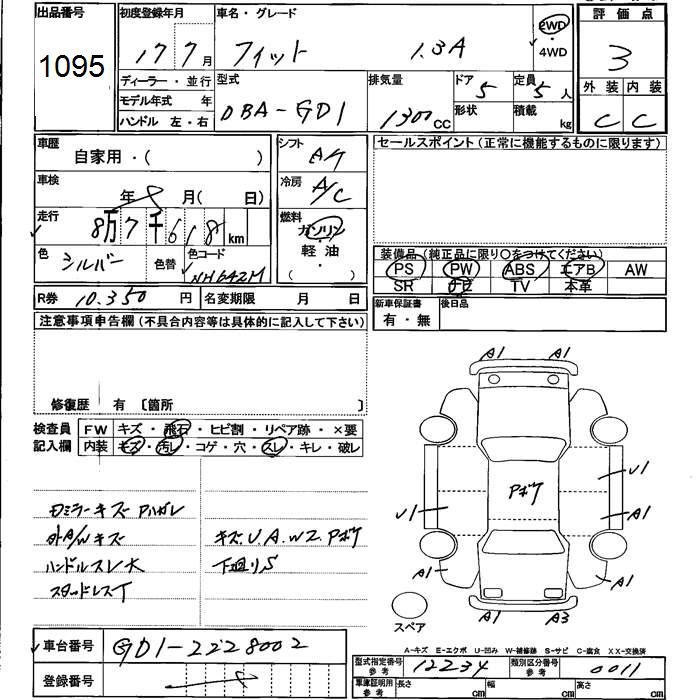 出品番号 1095
初度登録年月 17 7月
車名・グレード フィット 1.3A
2WD・4WD
評価点 3
外装 内装
C C
ディーラー・並行
モデル年式 年
ハンドル 左・右
型式 DBA-GD1
排気量 1300CC
ドア 5
形状
定員 5人
積載 kg
車歴 自家用・( )
車検 年 月( 日)
走行 8万7千618km
色 シルバー
色替
色コード NH642M
シフト AT
冷房 A/C
燃料 ガソリン・軽油 ( )
セールスポイント(正常に機能するものに限ります)
装備品(純正品に限り○をつけてください)
PS PW ABS エアB AW
SR ナビ TV 本革
新車保証書 有・無
後日品
R券 10,350円
名変期限 月 日
注意事項申告欄(不具合内容等は具体的に記入して下さい)
修復歴 有 〔箇所 〕
検査員記入欄
FW キズ・飛石・ヒビ割・リペア跡・×要
内装 キズ・汚レ・コゲ・穴・スレ・キレ・破レ
ドミラーキズ Pハガレ
外A/Wキズ
ハンドルスレ大
スタッドレスT
キズ.U.A.W2.Pボケ
下廻りS
A1 A1
Pボケ
U1
U1
A1
A1
A1
A1 A3
スペア
A-キズ E-エクボ U-凹み W-補修跡 S-サビ C-腐食 XX-交換済
車台番号 GD1-2228002
登録番号
型式指定番号 参考 12234
類別区分番号 参考 0011
車庫証明用 参考 長さ cm 幅 cm 高さ cm